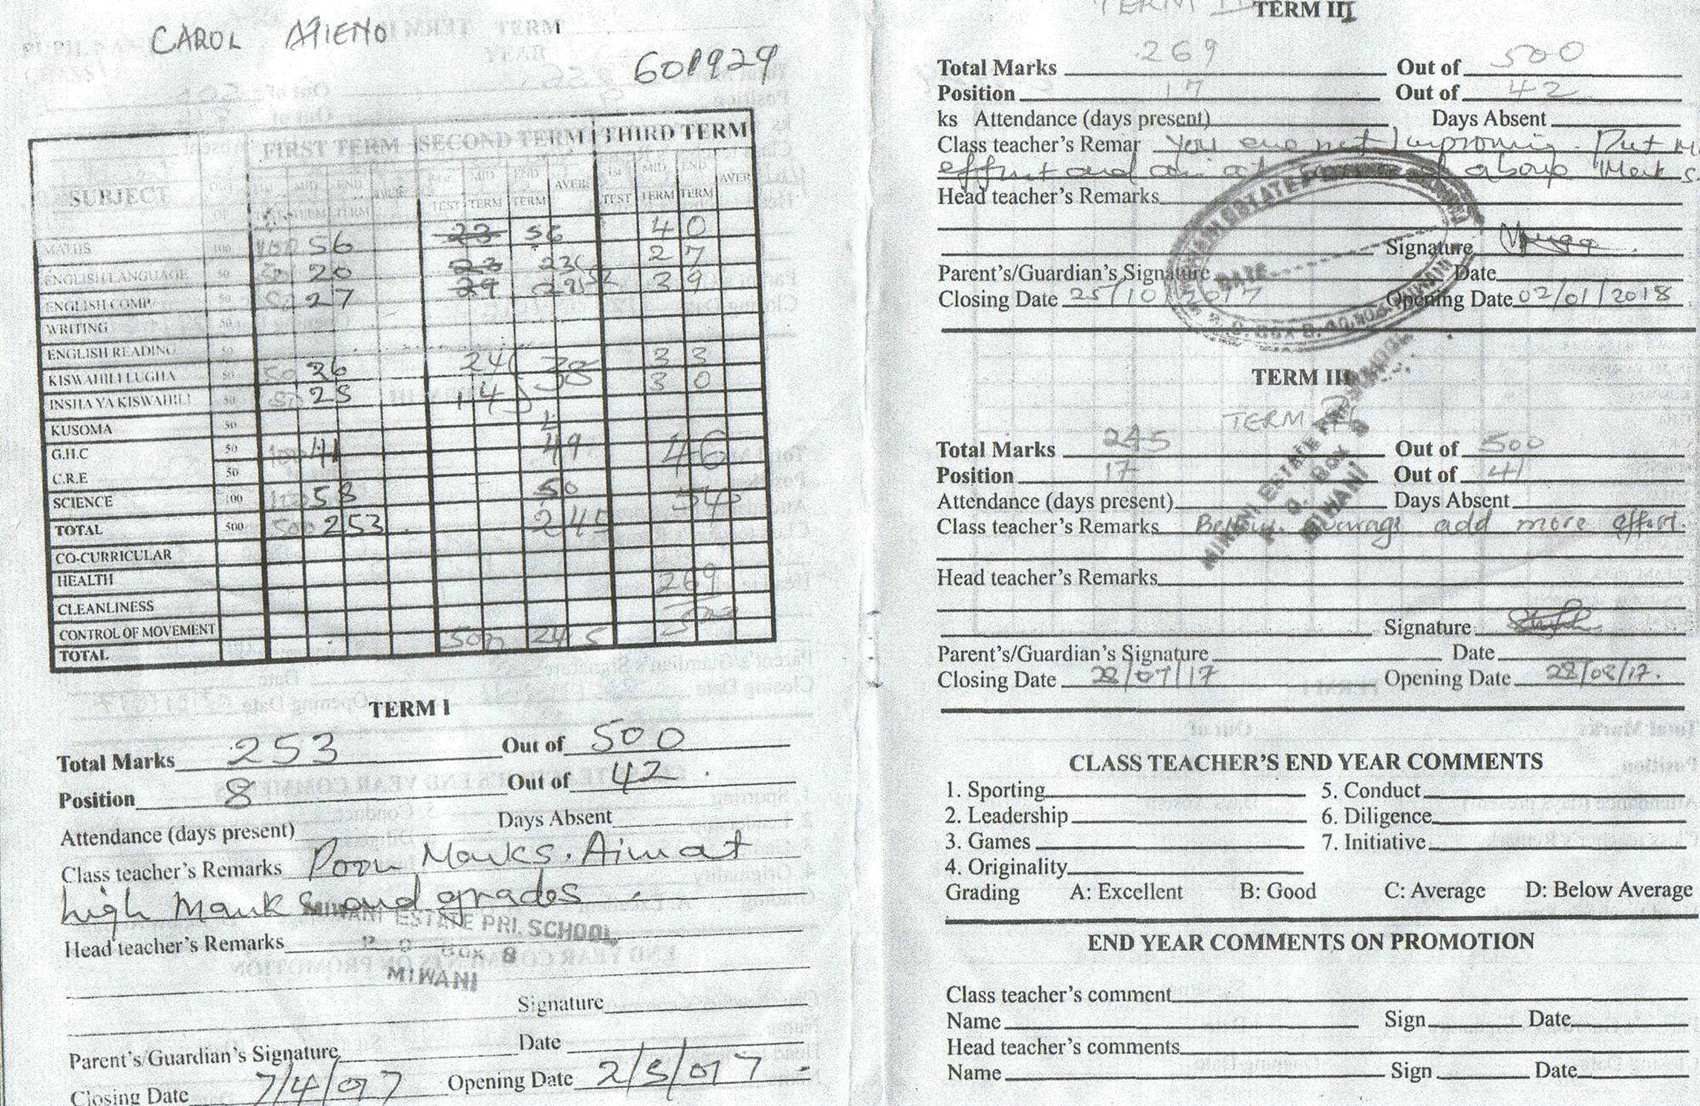 CAROL ATIENO
TERM
YEAR
601929
FIRST TERM SECOND TERM THIRD TERM
SUBJECT OUT OF MID TERM END TERM AVER 1st TEST MID TERM END TERM AVER 1st TEST MID TERM END TERM AVER
MATHS 100 100 56 23 56 40
ENGLISH LANGUAGE 50 50 20 23 23 27
ENGLISH COMP 50 50 27 29 29 52 39
WRITING 50
ENGLISH READING 50
KISWAHILI LUGHA 50 50 26 24 38 33
INSHA YA KISWAHILI 50 50 25 14 30
KUSOMA 50
G.H.C 50 100 41 49 46
C.R.E 50
SCIENCE 100 100 58 50 54
TOTAL 500 500 253 245
CO-CURRICULAR
HEALTH 269
CLEANLINESS 500
CONTROL OF MOVEMENT
TOTAL 500 245
TERM I
Total Marks 253 Out of 500
Position 8 Out of 42.
Attendance (days present) Days Absent
Class teacher's Remarks Poor Marks. Aim at
high Marks and grades.
MIWANI ESTATE PRI. SCHOOL
Head teacher's Remarks
P O BOX 8
MIWANI
Signature
Parent's/Guardian's Signature Date
Closing Date 7/4/017 Opening Date 2/5/017.
TERM III
Total Marks 269 Out of 500
Position 17 Out of 42
ks Attendance (days present) Days Absent
Class teacher's Remar You are not Improving. Put
effort and aim at above Marks.
Head teacher's Remarks
Signature
Parent's/Guardian's Signature Date
DATE
Closing Date 25/10/2017 Opening Date 02/01/2018
TERM III
TERM
Total Marks 245 Out of 500
Position 17 Out of 41
Attendance (days present) Days Absent
Class teacher's Remarks Below Average add more effort.
MIWANI ESTATE PRI SCHOOL
P. O. BOX 8
MIWANI
Head teacher's Remarks
Signature
Parent's/Guardian's Signature Date
Closing Date 28/07/17 Opening Date 28/08/17.
CLASS TEACHER'S END YEAR COMMENTS
1. Sporting 5. Conduct
2. Leadership 6. Diligence
3. Games 7. Initiative
4. Originality
Grading A: Excellent B: Good C: Average D: Below Average
END YEAR COMMENTS ON PROMOTION
Class teacher's comment
Name Sign Date
Head teacher's comments
Name Sign Date